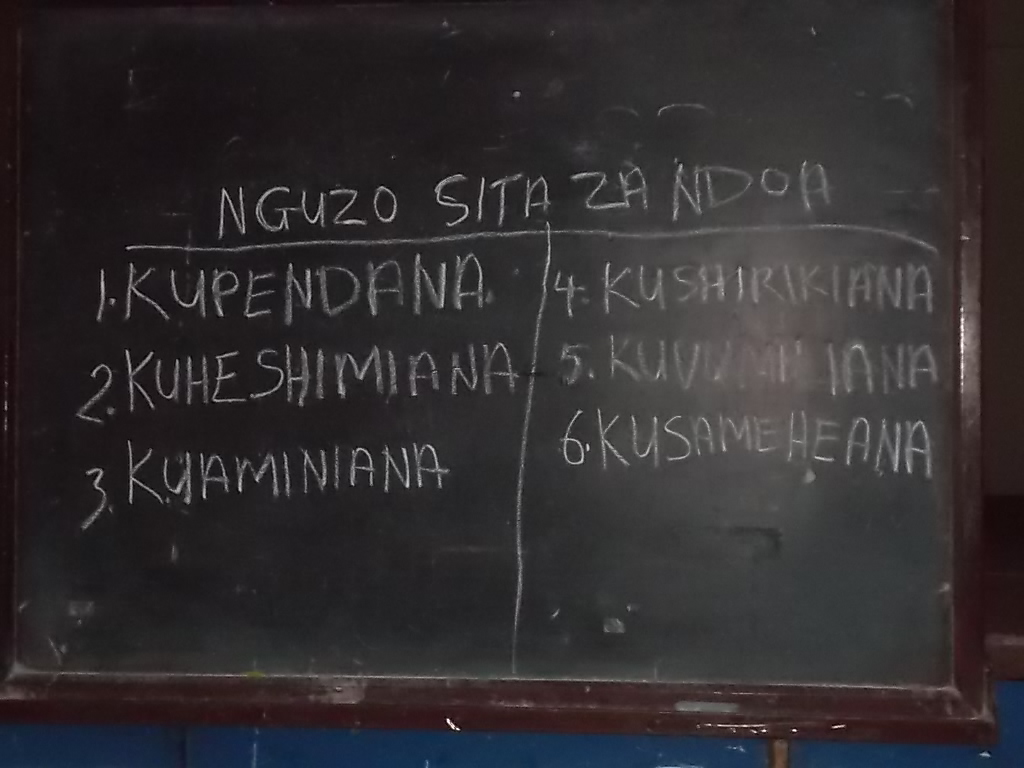 NGUZO SITA ZA NDOA
1. KUPENDANA
2. KUHESHIMIANA
3. KUAMINIANA
4. KUSHIRIKIANA
5. KUVUMILIANA
6. KUSAMEHEANA